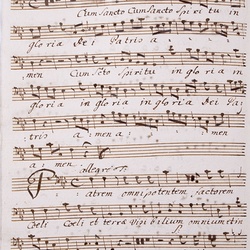 Cum Sancto Cum Sancto Spiritu in
gloria Dei Patris a
men Cum Scto Spiritu in gloria in
gloria in gloria in gloria Dei Pa
tris a men a men
a men
allegro
Patrem omnipotentem factorem
Coeli Coeli et terrae Visibilium omnium et in